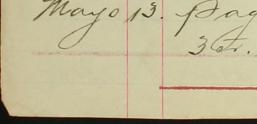 Mayo 13. Pag
3